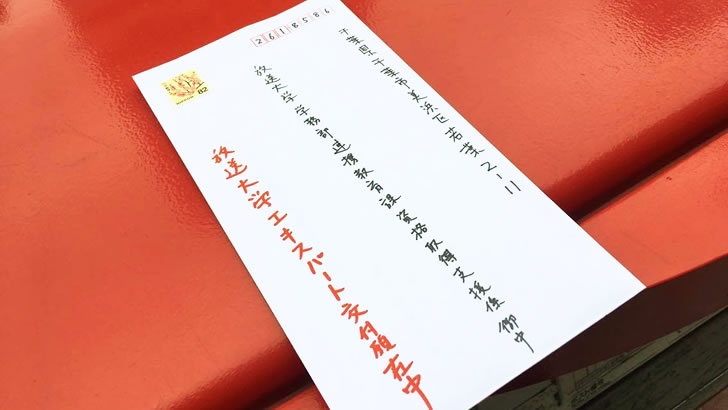 2618586
千葉県千葉市美浜区若葉2-11
放送大学学務部連携教育課資格取得支援係御中
放送大学エキスパート交付願在中
82